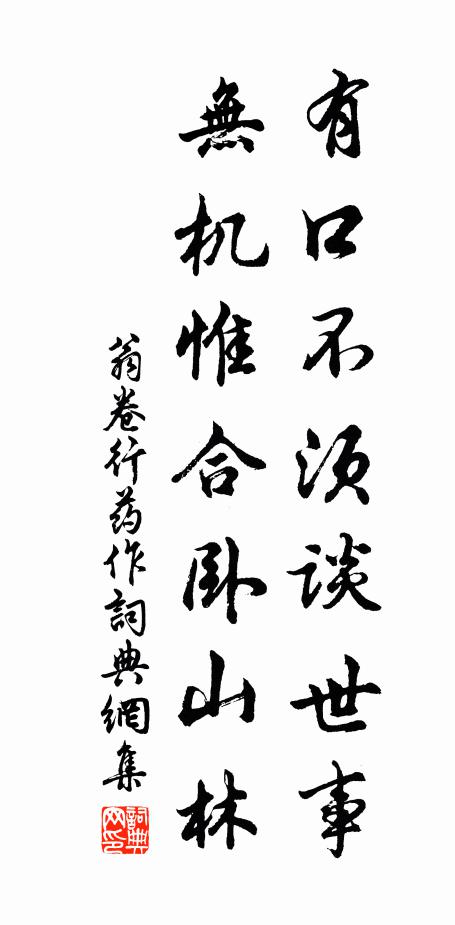 有口不须談世事
無机惟合卧山林
翁卷行药作詞典網集
詞典网印